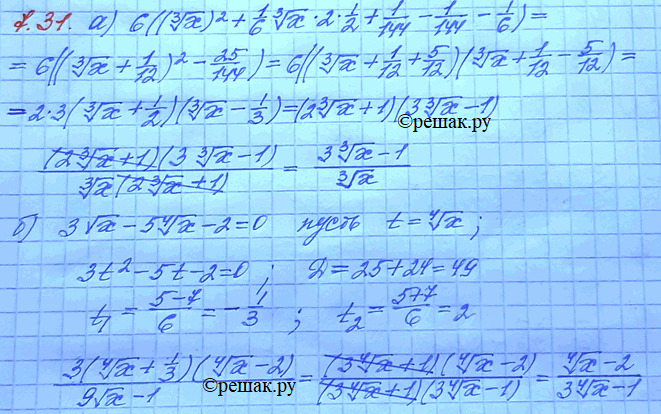 7.31. а) 6((∛x)² + 1/6 ∛x · 2 · 1/2 + 1/144 − 1/144 − 1/6) =
= 6((∛x + 1/12)² − 25/144) = 6(∛x + 1/12 + 5/12)(∛x + 1/12 − 5/12) =
= 2·3(∛x + 1/2)(∛x − 1/3) = (2∛x + 1)(3∛x − 1)
©решак.ру
(2∛x + 1)(3∛x − 1) / ∛x(2∛x + 1) = (3∛x − 1) / ∛x
б) 3√x − 5∜x − 2 = 0 пусть t = ∜x ;
3t² − 5t − 2 = 0 ; Д = 25 + 24 = 49
t₁ = (5−7)/6 = −1/3 ; t₂ = (5+7)/6 = 2
3(∜x + 1/3)(∜x − 2) / 9√x − 1 = (3∜x + 1)(∜x − 2) / (3∜x + 1)(3∜x − 1) = (∜x − 2) / (3∜x − 1)
©решак.ру